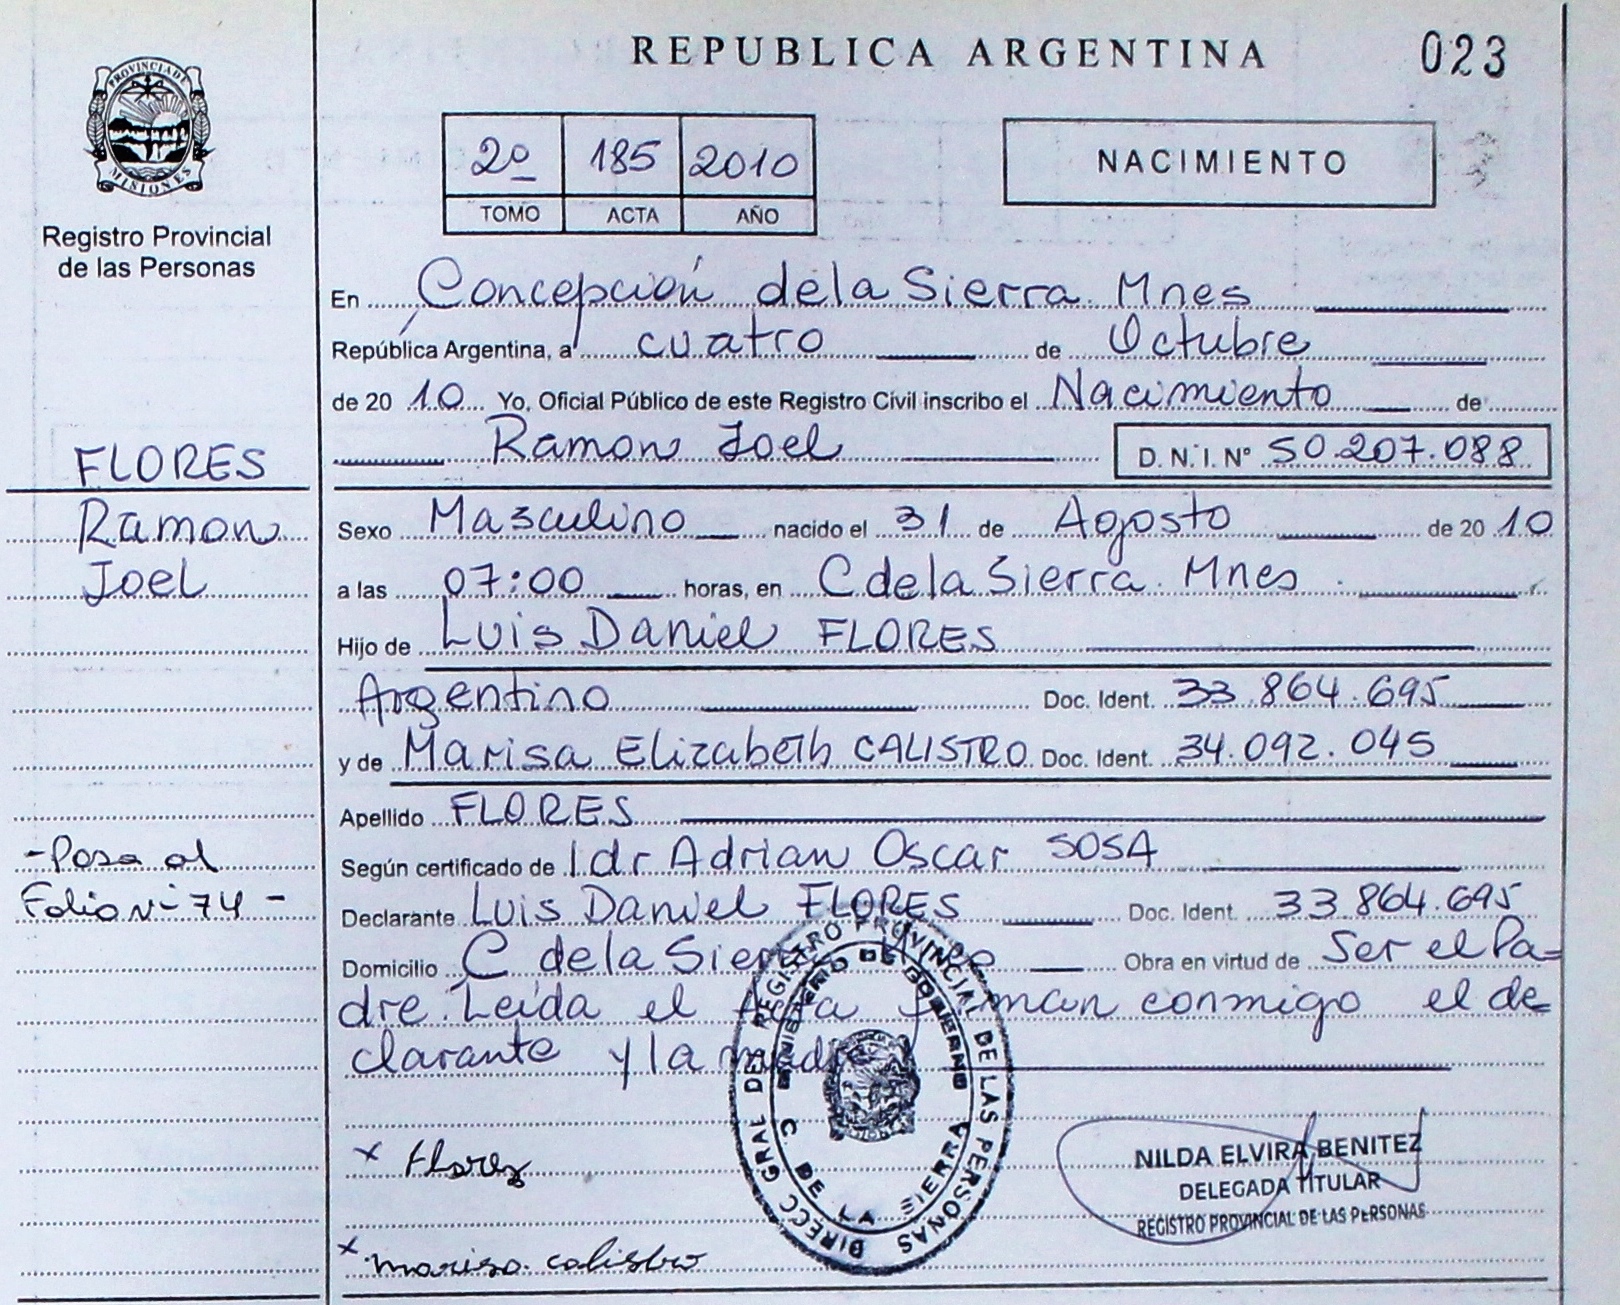 REPUBLICA ARGENTINA
023
PROVINCIA DE
MISIONES
Registro Provincial
de las Personas
2º 185 2010
TOMO ACTA AÑO
NACIMIENTO
En Concepción dela Sierra. Mnes
República Argentina, a cuatro de Octubre
de 2010 Yo, Oficial Público de este Registro Civil inscribo el Nacimiento de
Ramon Joel D.N.I. Nº 50.207.088
FLORES
Ramon
Joel
Sexo Masculino nacido el 31 de Agosto de 2010
a las 07:00 horas, en C dela Sierra. Mnes.
Hijo de Luis Daniel FLORES
Argentino Doc. Ident. 33.864.695
y de Marisa Elizabeth CALISTRO Doc. Ident. 34.092.045
Apellido FLORES
Según certificado de l dr Adrian Oscar SOSA
-Pasa al
Folio Nº 74-
Declarante Luis Daniel FLORES Doc. Ident. 33.864.695
Domicilio C dela Sierra Mnes Obra en virtud de Ser el Pa=
dre. Leida el Acta firman conmigo el de=
clarante y la madre
x Florez
x marisa calistro
DIRECC GRAL DEL REGISTRO PROVINCIAL DE LAS PERSONAS
MINISTERIO DE GOBIERNO
C. DE LA SIERRA
NILDA ELVIRA BENITEZ
DELEGADA TITULAR
REGISTRO PROVINCIAL DE LAS PERSONAS